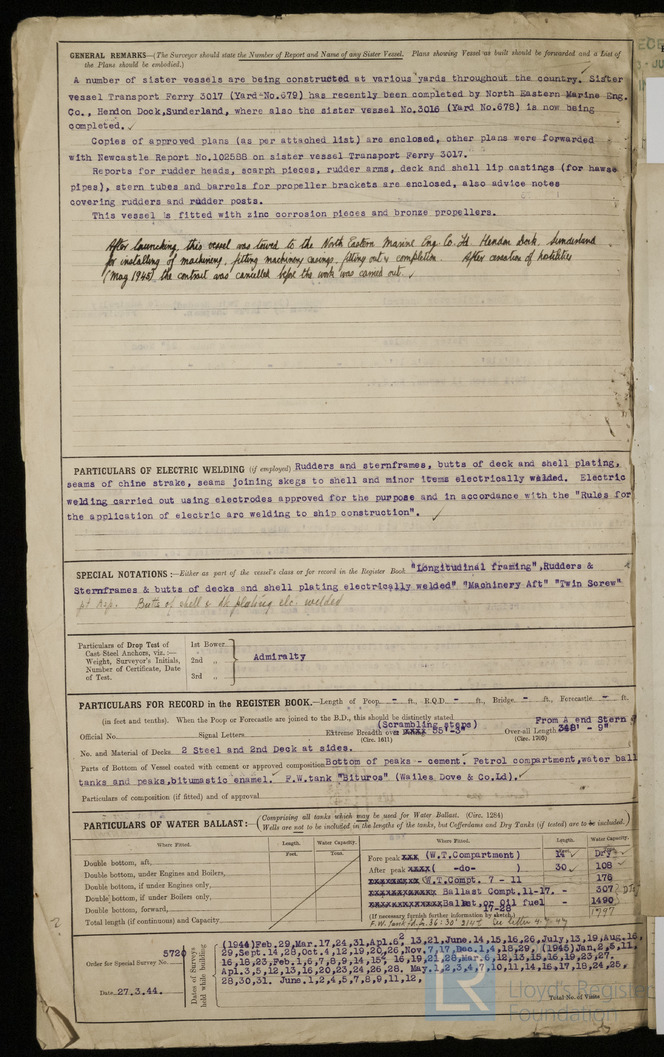 GENERAL REMARKS—(The Surveyor should state the Number of Report and Name of any Sister Vessel. Plans showing Vessel as built should be forwarded and a List of
the Plans should be embodied.)
A number of sister vessels are being constructed at various yards throughout the country. Sister
vessel Transport Ferry 3017 (Yard No.679) has recently been completed by North Eastern Marine Eng.
Co., Hendon Dock,Sunderland, where also the sister vessel No.3016 (Yard No.678) is now being
completed.
Copies of approved plans (as per attached list) are enclosed, other plans were forwarded
with Newcastle Report No.102588 on sister vessel Transport Ferry 3017.
Reports for rudder heads, scarph pieces, rudder arms, deck and shell lip castings (for hawse
pipes), stern tubes and barrels for propeller brackets are enclosed, also advice notes
covering rudders and rudder posts.
This vessel is fitted with zinc corrosion pieces and bronze propellers.
After launching, this vessel was towed to the North Eastern Marine Eng. Co. Ld. Hendon Dock, Sunderland
for installing of machinery, fitting machinery casings, fitting out & completion. After cessation of hostilities
(May 1945) the contract was cancelled before the work was carried out.
PARTICULARS OF ELECTRIC WELDING (if employed) Rudders and sternframes, butts of deck and shell plating,
seams of chine strake, seams joining skegs to shell and minor items electrically welded. Electric
welding carried out using electrodes approved for the purpose and in accordance with the "Rules for
the application of electric arc welding to ship construction".
SPECIAL NOTATIONS:—Either as part of the vessel's class or for record in the Register Book "Longitudinal framing",Rudders &
Sternframes & butts of decks and shell plating electrically welded" "Machinery Aft" "Twin Screw"
Butts of shell & dk plating elc. welded
Particulars of Drop Test of
Cast Steel Anchors, viz.:—
Weight, Surveyor's Initials,
Number of Certificate, Date
of Test.
1st Bower
2nd "
3rd "
Admiralty
PARTICULARS FOR RECORD in the REGISTER BOOK.—Length of Poop - ft., R.Q.D. - ft., Bridge - ft., Forecastle - ft.
(in feet and tenths). When the Poop or Forecastle are joined to the B.D., this should be distinctly stated
(Scrambling steps) From A end Stern
Official No. Signal Letters Extreme Breadth over 55'-3" Over-all Length 348' - 9"
(Circ. 1611) (Circ. 1703)
No. and Material of Decks 2 Steel and 2nd Deck at sides.
Parts of Bottom of Vessel coated with cement or approved composition Bottom of peaks - cement. Petrol compartment,water ball
tanks and peaks,bitumastic enamel. F.W.tank "Bituros" (Wailes Dove & Co.Ld).
Particulars of composition (if fitted) and of approval
PARTICULARS OF WATER BALLAST:— (Comprising all tanks which may be used for Water Ballast. (Circ. 1284)
Wells are not to be included in the lengths of the tanks, but Cofferdams and Dry Tanks (if tested) are to be included.)
Where Fitted. Length. Water Capacity.
Feet. Tons.
Double bottom, aft,
Double bottom, under Engines and Boilers,
Double bottom, if under Engines only,
Double bottom, if under Boilers only,
Double bottom, forward,
Total length (if continuous) and Capacity
Where Fitted. Length. Water Capacity.
Fore peak XXX (W.T.Compartment) 14 Dry
After peak XXXX( -do- ) 30 108
XXXXXXXXXX W.T.Compt. 7 - 11 176
XXXXXXXXXXXX Ballast Compt.11-17. - 307
XXXXXXXXXXXXX Ballast or Oil fuel - 1490
17-28
(If necessary furnish further information by sketch.) 1797
Order for Special Survey No. 5720
Date 27.3.44.
Dates of Surveys
held while building
(1944)Feb.29,Mar.17,24,31,Apl.6, 13,21,June.14,15,16,26,July,13,19,Aug.16,
29,Sept.14,28,Oct.4,12,19,20,26,Nov.7,17,Dec.1,4,18,29, (1945)Jan.2,5,11,
16,18,23,Feb.1,6,7,8,9,14,15, 16,19,21,28,Mar.6,12,13,15,16,19,23,27.
Apl.3,5,12,13,16,20,23,24,26,28. May.1,2,3,4,7,10,11,14,16,17,18,24,25,
28,30,31. June.1,2,4,5,7,8,9,11,12,
Total No. of Visits
LR
Lloyd's Register
Foundation